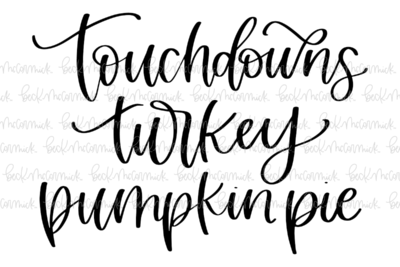 touchdowns
turkey
pumpkin pie